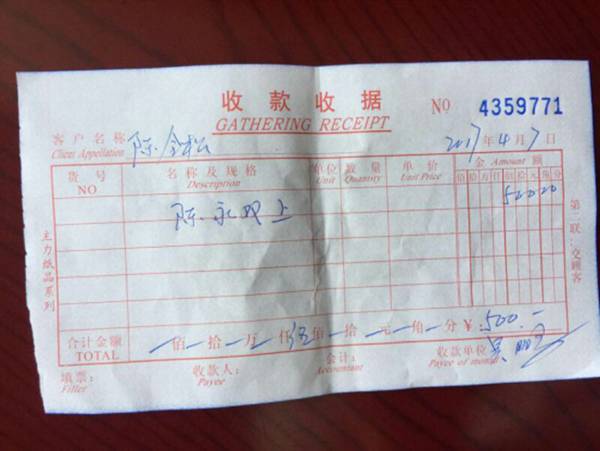 收款收据 NO 4359771
GATHERING RECEIPT
客户名称 陈金松 2017年4月7日
Client Appellation
货号 名称及规格 单位 数量 单价 金 Amount 额
NO Description Unit Quantity Unit Price 佰 拾 万 仟 佰 拾 元 角 分
50000
陈永双上
主力纸品系列
第二联:交顾客
合计金额 一佰一拾一万一仟伍佰一拾一元一角一分 ¥:500.—
TOTAL
填票: 收款人: 会计: 收款单位
Filler Payee Accountant Payee of money